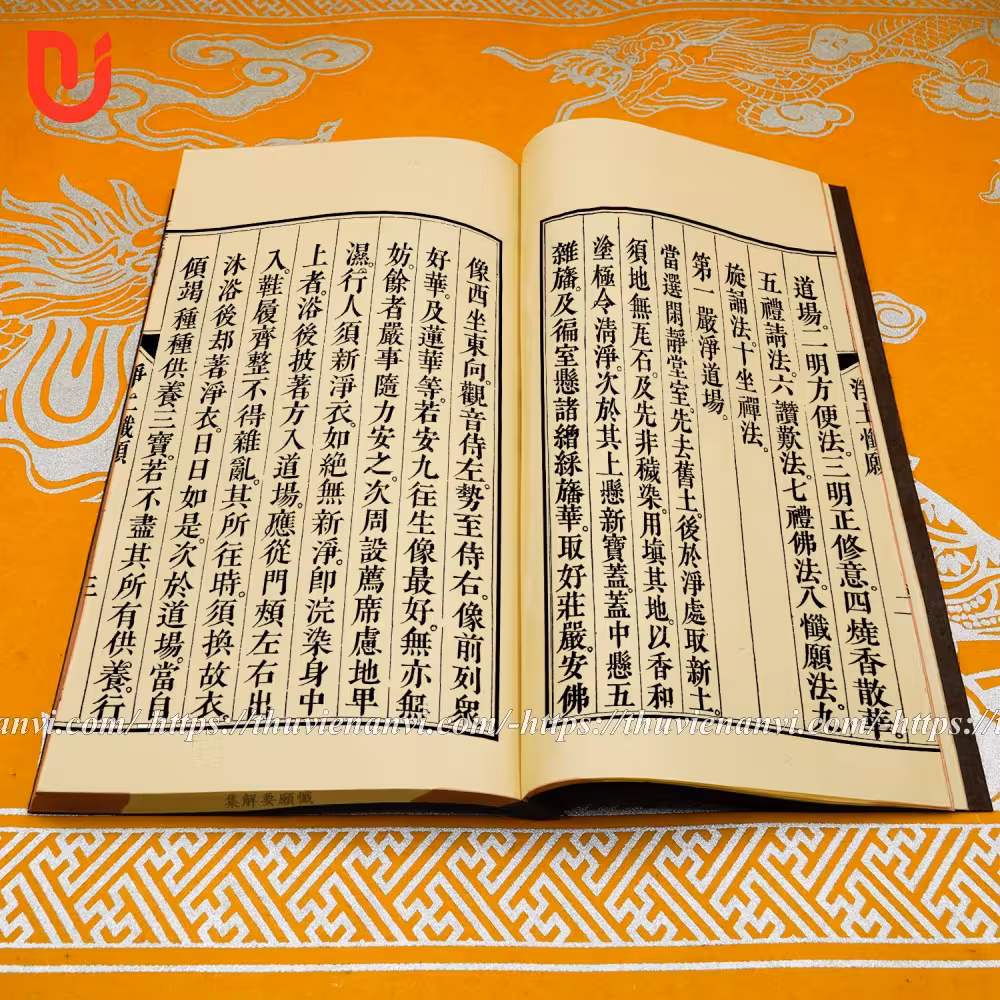 淨土懺願 二
道場。二明方便法。三明正修意。四燒香散華。
五禮請法。六讚歎法。七禮佛法。八懺願法。九
旋誦法。十坐禪法。
第一嚴淨道場。
當選閑靜堂室。先去舊土。後於淨處取新土。
須地無瓦石。及先非穢染。用填其地。以香和
塗極令清淨。次於其上懸新寶蓋。蓋中懸五
雜旛。及徧室懸諸繒綵旛華。取好莊嚴。安佛
像西坐東向。觀音侍左。勢至侍右。像前列眾
好華。及蓮華等。若安九往生像最好。無亦無
妨。餘者嚴事隨力安之。次周設薦席慮地卑
濕。行人須新淨衣。如絕無新淨。卽浣染身中
上者。浴後披著方入道場。應從門頰左右出
入。鞋履齊整不得雜亂。其所往時。須換故衣。
沐浴後却著淨衣。日日如是。次於道場。當自
傾竭種種供養三寶。若不盡其所有供養。行
淨土懺願 三
懺願要解集
anvi.com/-https://thuvienanvi.com/-https://thuvienanvi.com/-https://t